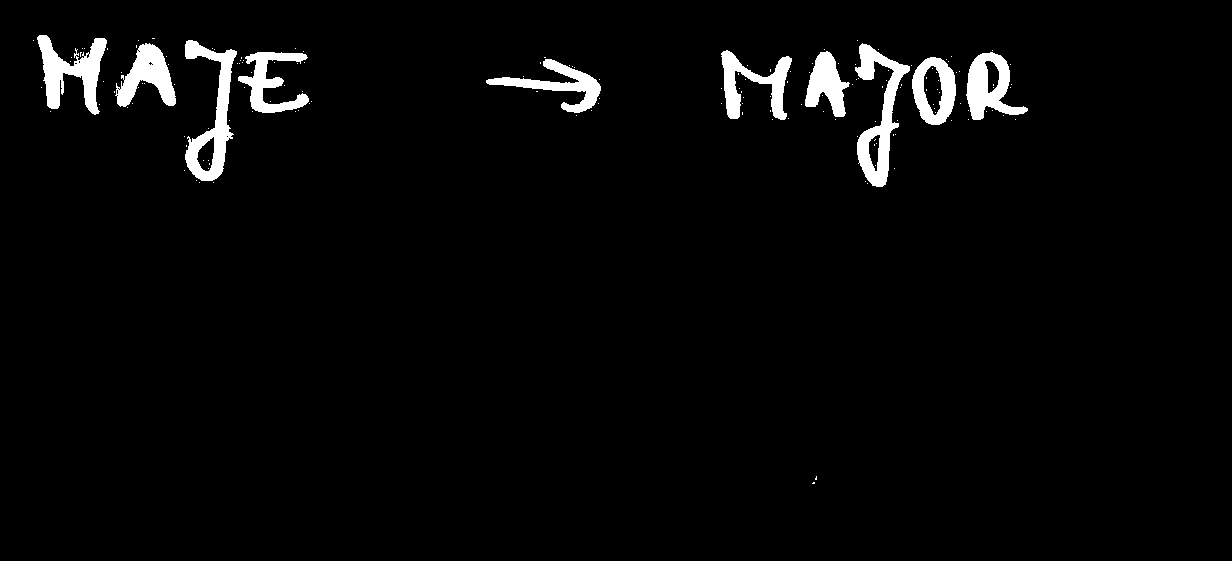 MAJE → MAJOR